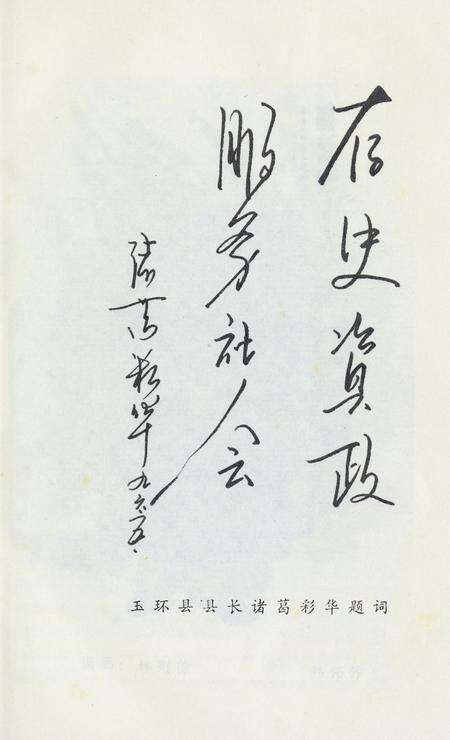 存史资政
服务社会
诸葛彩华 九六.五.
玉环县县长诸葛彩华题词